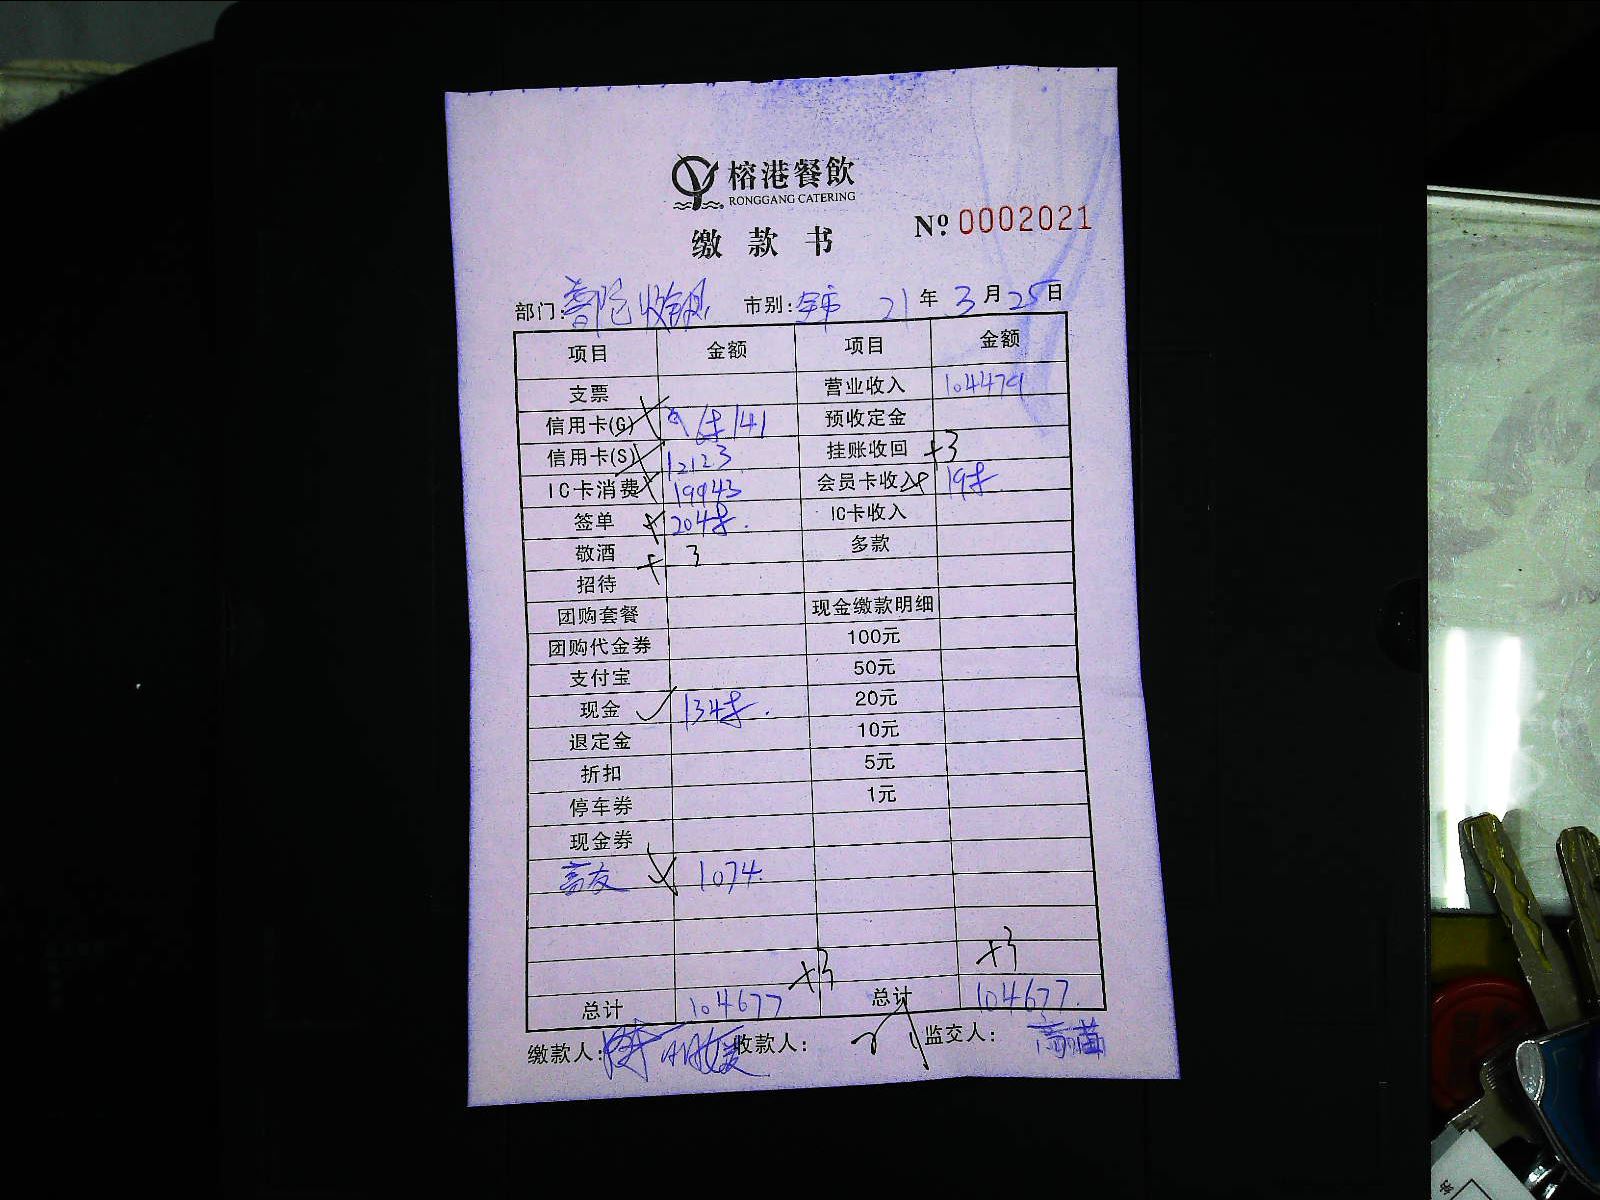 榕港餐飲
RONGGANG CATERING
缴款书
Nº 0002021
部门: 普陀收银 市别: 全市 21年3月25日
项目 金额 项目 金额
支票 营业收入 104479
信用卡(G) 141 预收定金
信用卡(S) 12123 挂账收回 +3
IC卡消费 19943 会员卡收入 198
签单 204 IC卡收入
敬酒 +3 多款
招待
团购套餐 现金缴款明细
团购代金券 100元
支付宝 50元
现金 134 20元
退定金 10元
折扣 5元
停车券 1元
现金券
1074.
+3 +3
总计 104677 总计 104677.
缴款人: 收款人: 监交人: